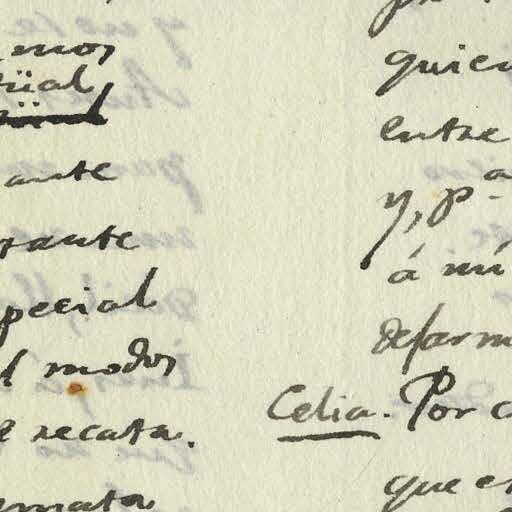 mos
üial
ante
rante
special
l modos
e recata.
mata
quien
entre
y, p.ª
á mi
desarm
Celia. Por
que es